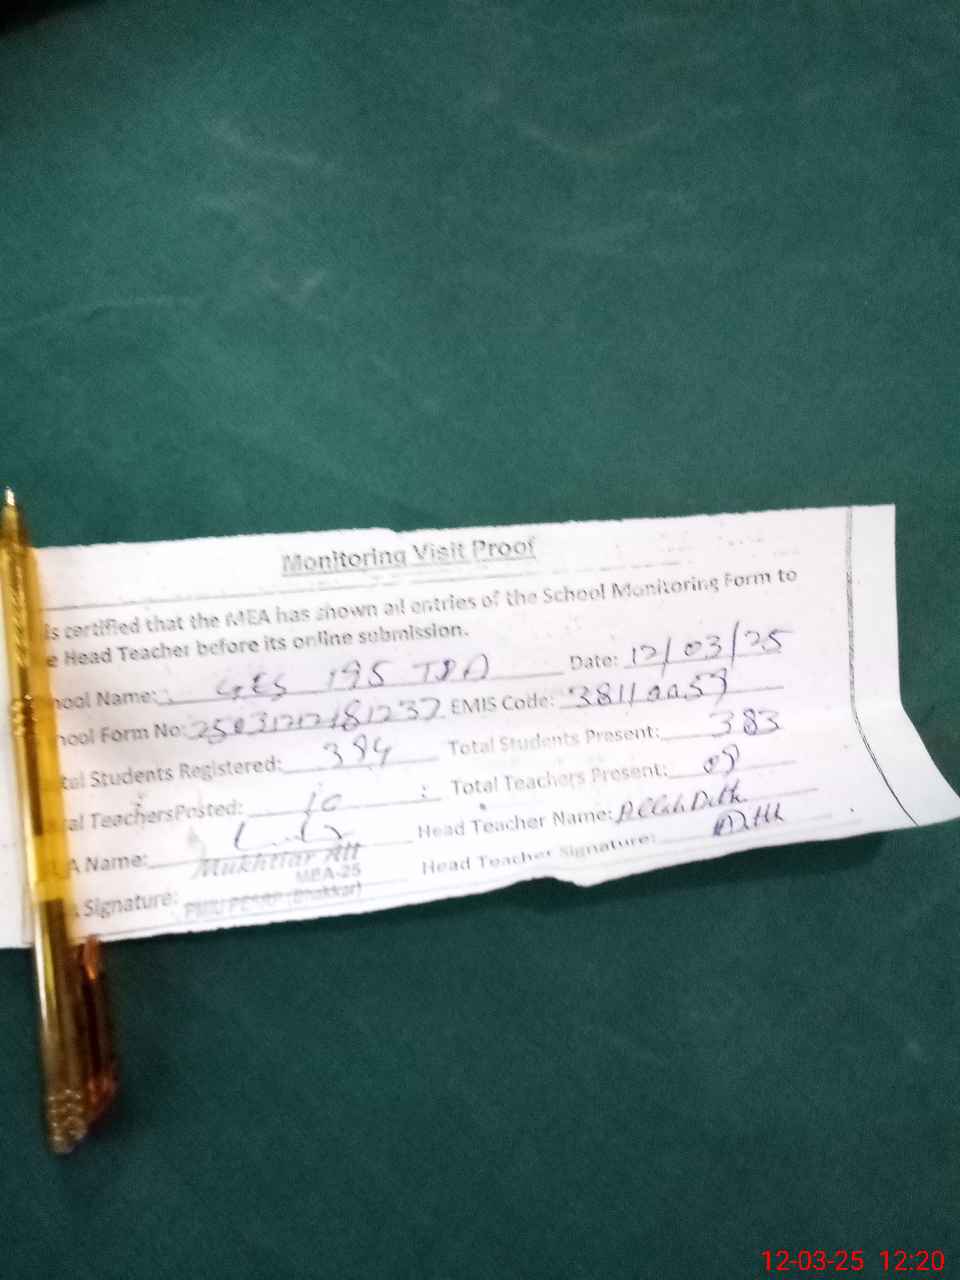 Monitoring Visit Proof
is certified that the MEA has shown all entries of the School Monitoring Form to
e Head Teacher before its online submission.
hool Name: GES 195 TDA Date: 12/03/25
hool Form No: EMIS Code:
tal Students Registered: 394 Total Students Present: 383
al TeachersPosted: 10 Total Teachers Present: 09
A Name: Head Teacher Name: Allah Ditta
Mukhtiar Ali
MEA-25
Signature: Head Teacher Signature:
(Bhakkar)
12-03-25 12:20